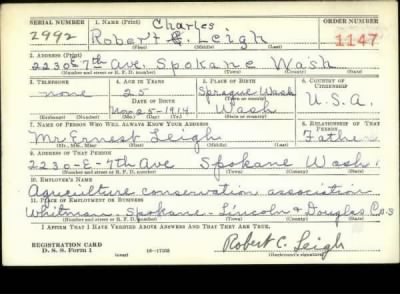 SERIAL NUMBER 1. NAME (Print) Charles ORDER NUMBER
2992 Robert C. Leigh 1147
(First) (Middle) (Last)
2. ADDRESS (Print)
2230 E 7th Ave. Spokane Wash
(Number and street or R. F. D. number) (Town) (County) (State)
3. TELEPHONE 4. AGE IN YEARS 5. PLACE OF BIRTH 6. COUNTRY OF CITIZENSHIP
none 25 Sprague Wash
DATE OF BIRTH (Town or county)
Nov 25-1914 Wash U.S.A.
(Exchange) (Number) (Mo.) (Day) (Yr.) (State or country)
7. NAME OF PERSON WHO WILL ALWAYS KNOW YOUR ADDRESS 8. RELATIONSHIP OF THAT PERSON
Mr. Ernest Leigh Father
(Mr., Mrs., Miss) (First) (Middle) (Last)
9. ADDRESS OF THAT PERSON
2230-E-7th Ave Spokane Wash.
(Number and street or R. F. D. number) (Town) (County) (State)
10. EMPLOYER'S NAME
Agriculture conservation association
11. PLACE OF EMPLOYMENT OR BUSINESS
Whitman, Spokane - Lincoln & Douglas Co.s
(Number and street or R. F. D. number) (Town) (County) (State)
I AFFIRM THAT I HAVE VERIFIED ABOVE ANSWERS AND THAT THEY ARE TRUE.
REGISTRATION CARD
D. S. S. Form 1 (over) Robert C. Leigh
(Registrant's signature)